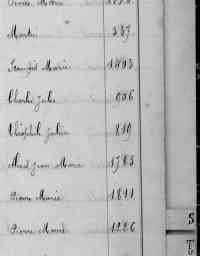 Martin 537
François Marie 1403
Charles Jules 906
Théophile Julien 819
Jean Marie 1783
Pierre Marie 1811
Pierre Marie 1226
S